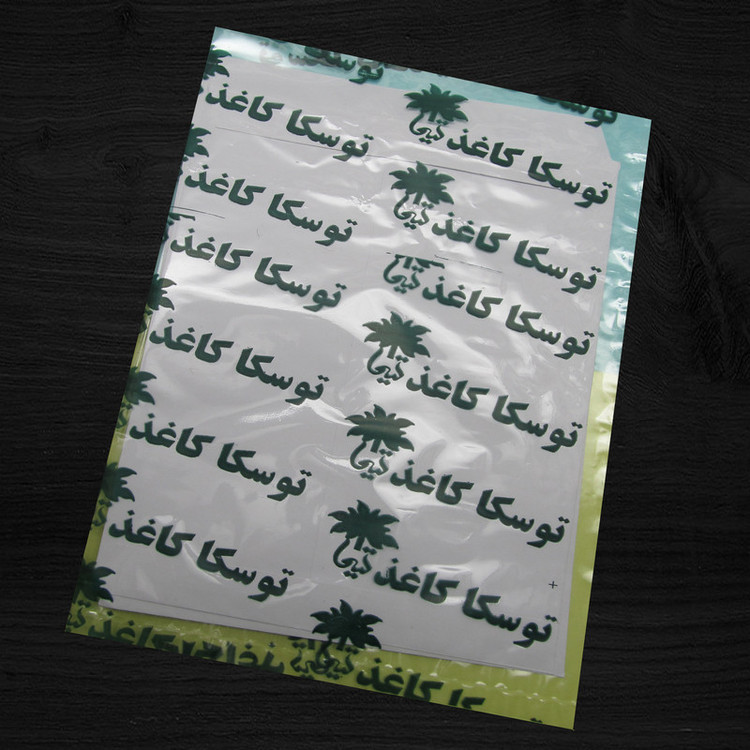 توسکا توسکا
توسکا کاغذ توسکا کاغذ
توسکا کاغذ توسکا کاغذ
توسکا کاغذ توسکا کاغذ
توسکا کاغذ توسکا کاغذ
توسکا کاغذ توسکا کاغذ
توسکا کاغذ توسکا کاغذ
کاغذ کاغذ